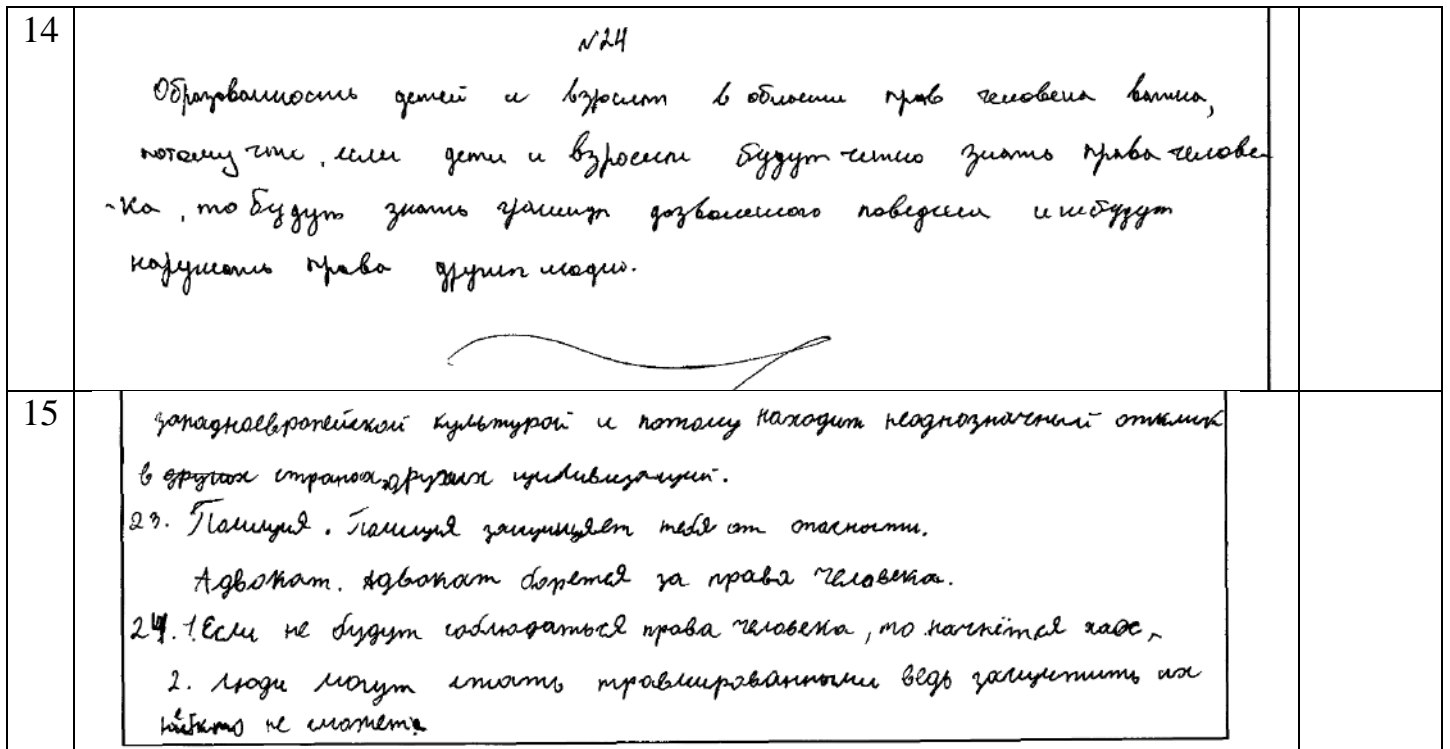 14
№24
Образованность детей и взрослых в области прав человека важна,
потому что, если дети и взрослые будут четко знать права челове-
-ка, то будут знать границы дозволенного поведения и не будут
нарушать права других людей.
15
западноевропейской культурой и потому находит неоднозначный отклик
в других странах других цивилизаций.
23. Полиция. Полиция защищает тебя от опасности.
Адвокат. Адвокат борется за права человека.
24. 1. Если не будут соблюдаться права человека, то начнётся хаос,
2. Люди могут стать травмированными ведь защитить их
никто не сможет.